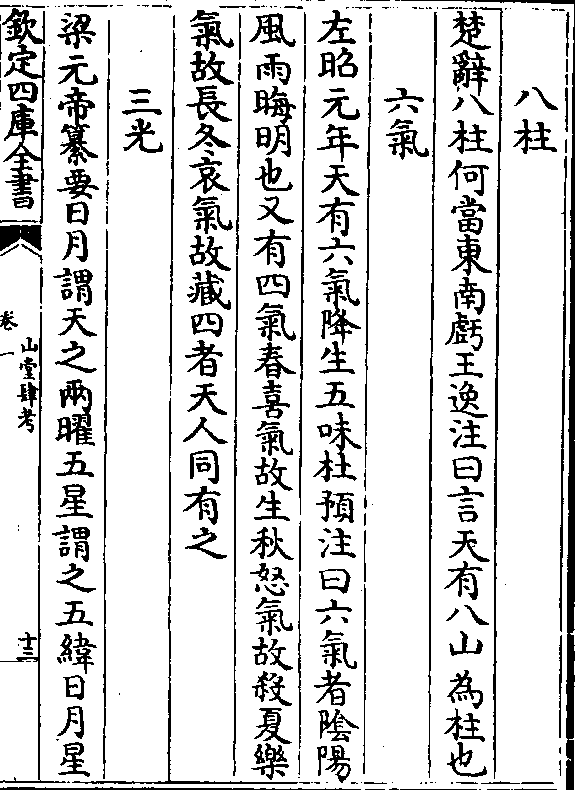 八柱
楚辭八柱何當東南虧王逸注曰言天有八山為柱也
六氣
左昭元年天有六氣降生五味杜預注曰六氣者陰陽
風雨晦明也又有四氣春喜氣故生秋怒氣故殺夏樂
氣故長冬哀氣故藏四者天人同有之
三光
梁元帝纂要日月謂天之兩曜五星謂之五緯日月星
欽定四庫全書
卷一
山堂肆考
十三